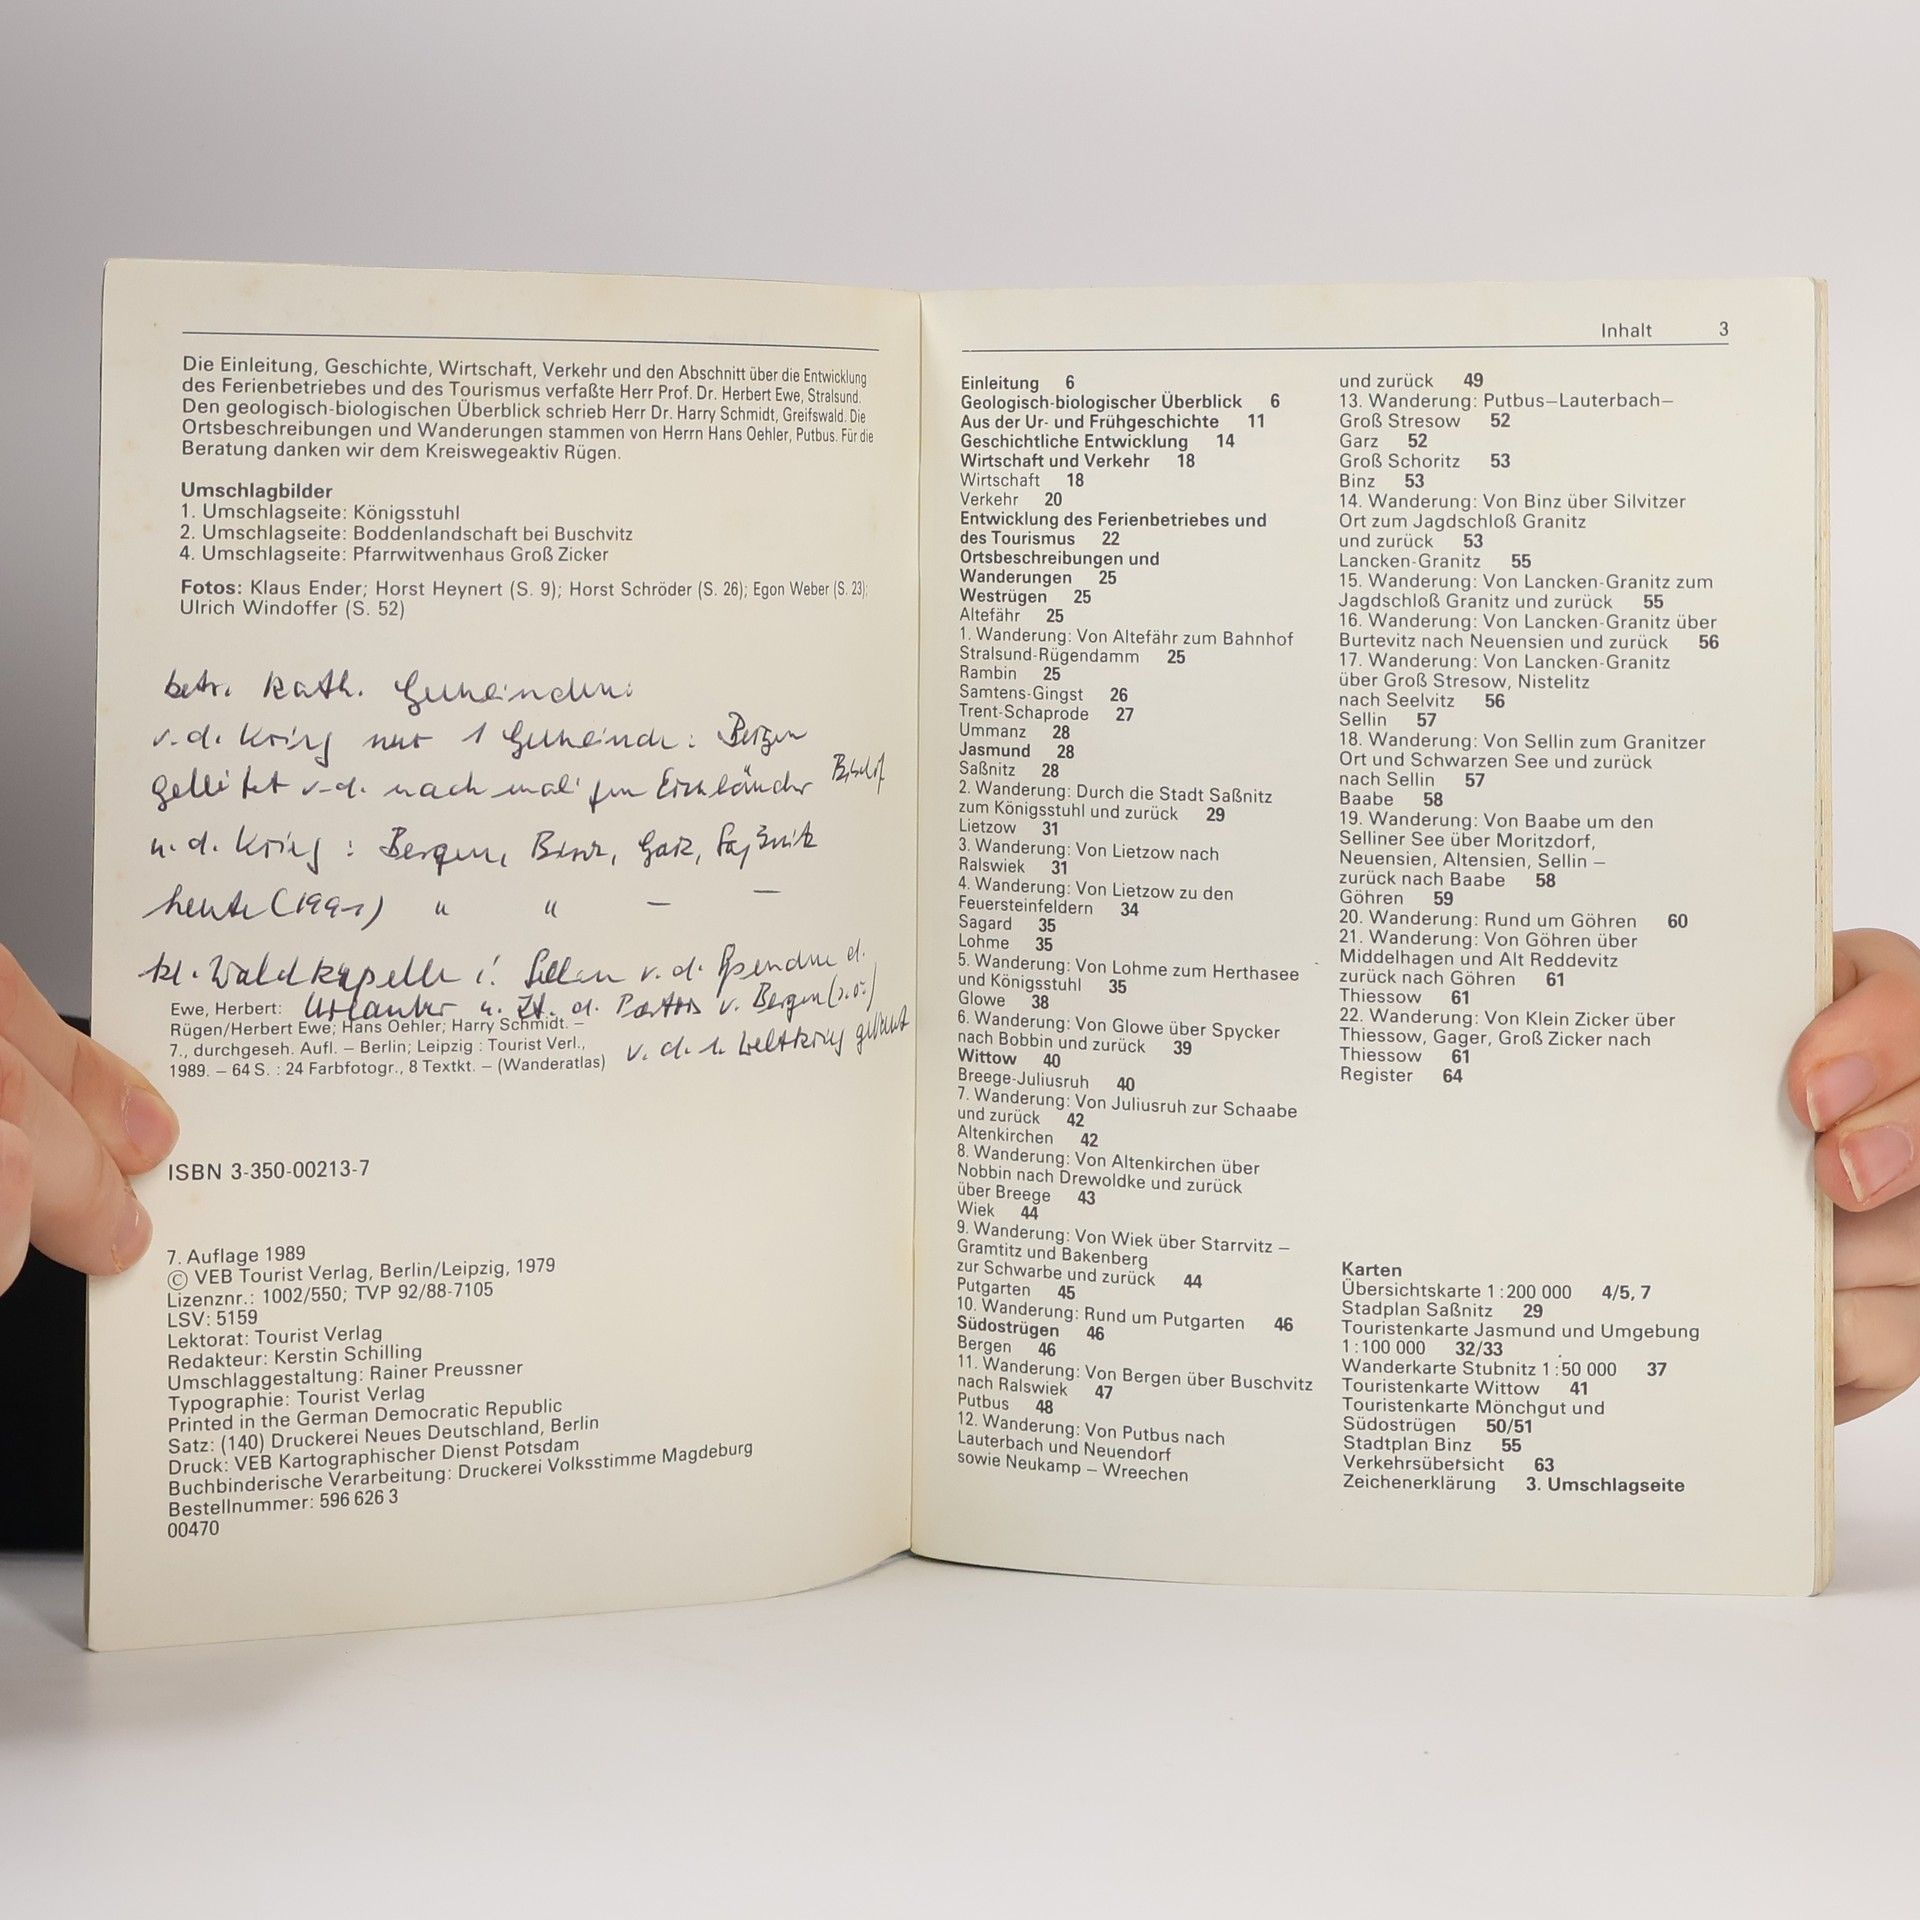 Die Einleitung, Geschichte, Wirtschaft, Verkehr und den Abschnitt über die Entwicklung
des Ferienbetriebes und des Tourismus verfaßte Herr Prof. Dr. Herbert Ewe, Stralsund.
Den geologisch-biologischen Überblick schrieb Herr Dr. Harry Schmidt, Greifswald. Die
Ortsbeschreibungen und Wanderungen stammen von Herrn Hans Oehler, Putbus. Für die
Beratung danken wir dem Kreiswegeaktiv Rügen.
Umschlagbilder
1. Umschlagseite: Königsstuhl
2. Umschlagseite: Boddenlandschaft bei Buschvitz
4. Umschlagseite: Pfarrwitwenhaus Groß Zicker
Fotos: Klaus Ender; Horst Heynert (S. 9); Horst Schröder (S. 26); Egon Weber (S. 23);
Ulrich Windoffer (S. 52)
betr. Kath. Gemeinden:
v. d. Krieg nur 1 Gemeinde: Bergen
geleitet v. d. nachmaligen Bischof
n. d. Krieg: Bergen, Binz, Garz, Saßnitz
heute (1991) " " — —
kl. Waldkapelle i. Sellin v. d. Spenden d.
Urlauber u. d. v. Bergen
v. d. 1. Weltkrieg gebaut
Ewe, Herbert:
Rügen/Herbert Ewe; Hans Oehler; Harry Schmidt. –
7., durchgeseh. Aufl. – Berlin; Leipzig : Tourist Verl.,
1989. – 64 S. : 24 Farbfotogr., 8 Textkt. – (Wanderatlas)
ISBN 3-350-00213-7
7. Auflage 1989
© VEB Tourist Verlag, Berlin/Leipzig, 1979
Lizenznr.: 1002/550; TVP 92/88-7105
LSV: 5159
Lektorat: Tourist Verlag
Redakteur: Kerstin Schilling
Umschlaggestaltung: Rainer Preussner
Typographie: Tourist Verlag
Printed in the German Democratic Republic
Satz: (140) Druckerei Neues Deutschland, Berlin
Druck: VEB Kartographischer Dienst Potsdam
Buchbinderische Verarbeitung: Druckerei Volksstimme Magdeburg
Bestellnummer: 596 626 3
00470
Inhalt 3
Einleitung 6
Geologisch-biologischer Überblick 6
Aus der Ur- und Frühgeschichte 11
Geschichtliche Entwicklung 14
Wirtschaft und Verkehr 18
Wirtschaft 18
Verkehr 20
Entwicklung des Ferienbetriebes und
des Tourismus 22
Ortsbeschreibungen und
Wanderungen 25
Westrügen 25
Altefähr 25
1. Wanderung: Von Altefähr zum Bahnhof
Stralsund-Rügendamm 25
Rambin 25
Samtens-Gingst 26
Trent-Schaprode 27
Ummanz 28
Jasmund 28
Saßnitz 28
2. Wanderung: Durch die Stadt Saßnitz
zum Königsstuhl und zurück 29
Lietzow 31
3. Wanderung: Von Lietzow nach
Ralswiek 31
4. Wanderung: Von Lietzow zu den
Feuersteinfeldern 34
Sagard 35
Lohme 35
5. Wanderung: Von Lohme zum Herthasee
und Königsstuhl 35
Glowe 38
6. Wanderung: Von Glowe über Spycker
nach Bobbin und zurück 39
Wittow 40
Breege-Juliusruh 40
7. Wanderung: Von Juliusruh zur Schaabe
und zurück 42
Altenkirchen 42
8. Wanderung: Von Altenkirchen über
Nobbin nach Drewoldke und zurück
über Breege 43
Wiek 44
9. Wanderung: Von Wiek über Starrvitz –
Gramtitz und Bakenberg
zur Schwarbe und zurück 44
Putgarten 45
10. Wanderung: Rund um Putgarten 46
Südostrügen 46
Bergen 46
11. Wanderung: Von Bergen über Buschvitz
nach Ralswiek 47
Putbus 48
12. Wanderung: Von Putbus nach
Lauterbach und Neuendorf
sowie Neukamp – Wreechen
und zurück 49
13. Wanderung: Putbus–Lauterbach–
Groß Stresow 52
Garz 52
Groß Schoritz 53
Binz 53
14. Wanderung: Von Binz über Silvitzer
Ort zum Jagdschloß Granitz
und zurück 53
Lancken-Granitz 55
15. Wanderung: Von Lancken-Granitz zum
Jagdschloß Granitz und zurück 55
16. Wanderung: Von Lancken-Granitz über
Burtevitz nach Neuensien und zurück 56
17. Wanderung: Von Lancken-Granitz
über Groß Stresow, Nistelitz
nach Seelvitz 56
Sellin 57
18. Wanderung: Von Sellin zum Granitzer
Ort und Schwarzen See und zurück
nach Sellin 57
Baabe 58
19. Wanderung: Von Baabe um den
Selliner See über Moritzdorf,
Neuensien, Altensien, Sellin –
zurück nach Baabe 58
Göhren 59
20. Wanderung: Rund um Göhren 60
21. Wanderung: Von Göhren über
Middelhagen und Alt Reddevitz
zurück nach Göhren 61
Thiessow 61
22. Wanderung: Von Klein Zicker über
Thiessow, Gager, Groß Zicker nach
Thiessow 61
Register 64
Karten
Übersichtskarte 1 : 200 000 4/5, 7
Stadplan Saßnitz 29
Touristenkarte Jasmund und Umgebung
1 : 100 000 32/33
Wanderkarte Stubnitz 1 : 50 000 37
Touristenkarte Wittow 41
Touristenkarte Mönchgut und
Südostrügen 50/51
Stadtplan Binz 55
Verkehrsübersicht 63
Zeichenerklärung 3. Umschlagseite